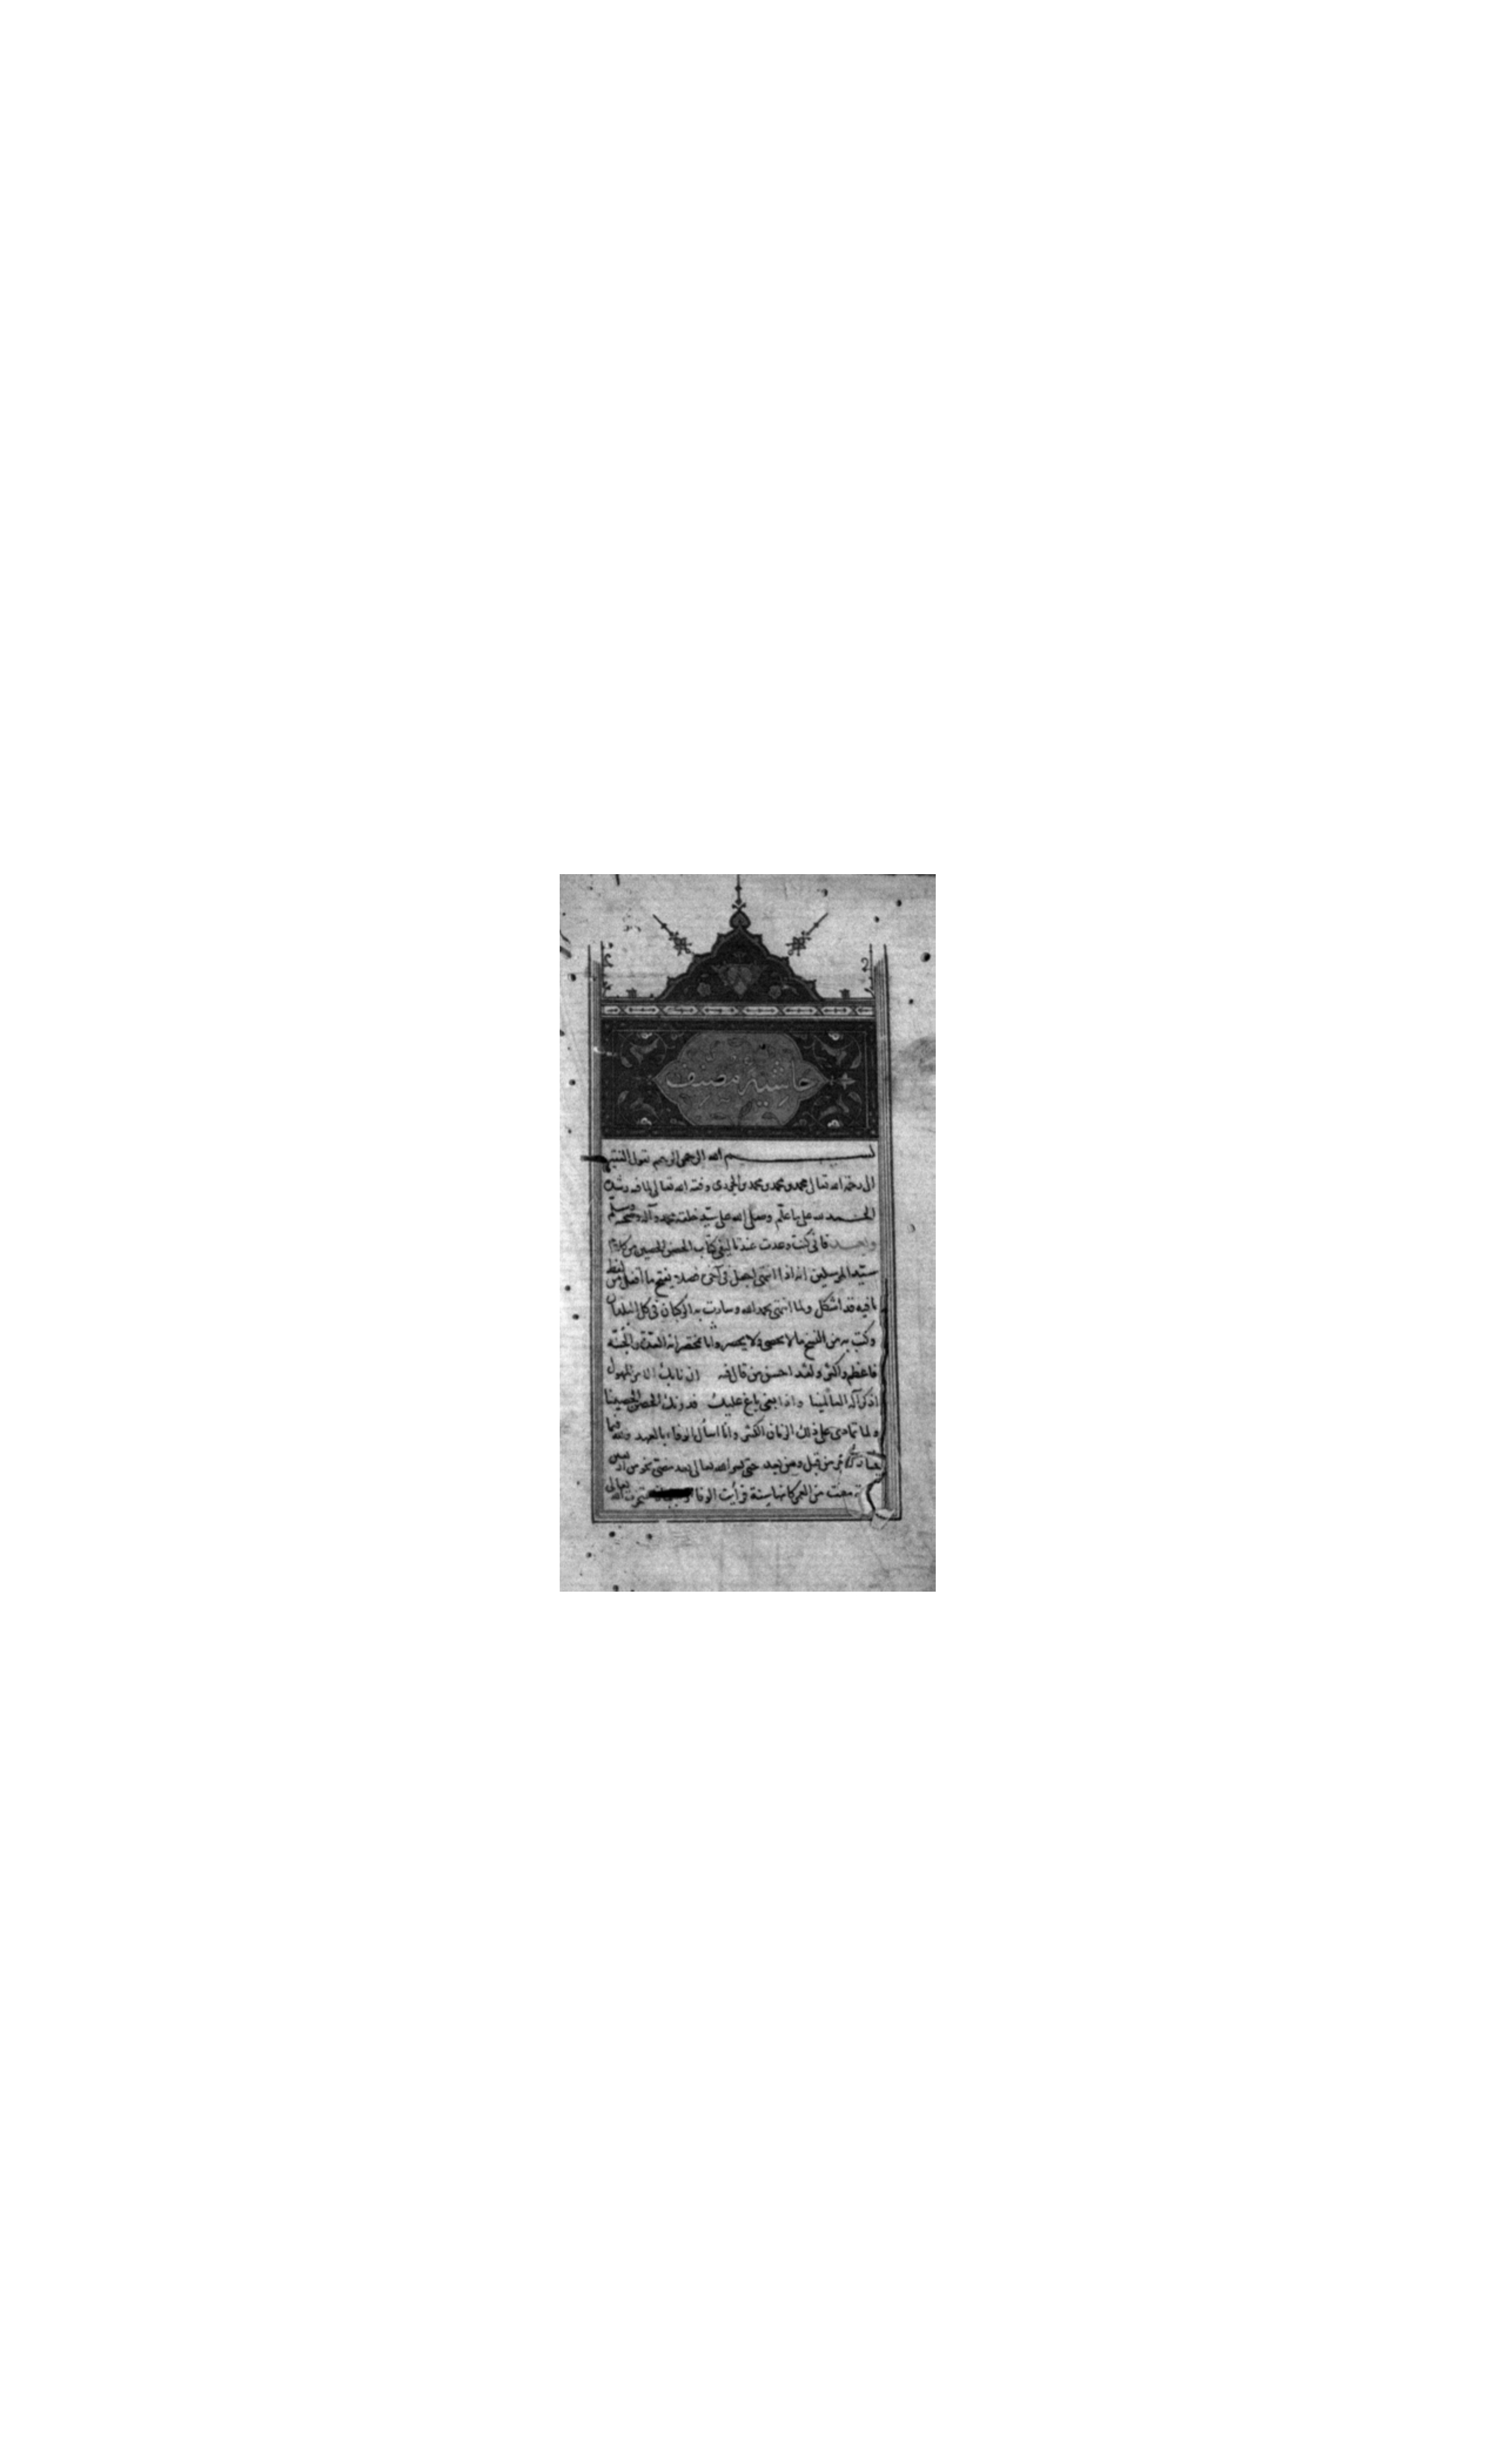 حاشية مصنف
بسم الله الرحمن الرحيم يقول الفقير
الى رحمة الله تعالى محمد بن محمد بن محمد بن الجزري وفقه الله تعالى لما فيه رشده
الحمد لله على ما علم وصلى الله على سيد خلقه محمد وآله وصحبه وسلم
وبعد فانى كنت وعدت عند تاليفى كتاب الحصن الحصين من كلام
سيد المرسلين انه اذا انتهى اجعل فى آخره فصلا يفتح ما اقفل من لفظ
ما فيه قد اشكل ولما انتهى بحمد الله وسارت به الركبان فى كل البلدان
وكتب به من النسخ ما لا يحصى ولا يحصر واما مختصراته العدة والجنة
فاعظم واكثر ولقد احسن من قال فيه ان نابك الامر المهول
اذكر آله العالمينا واذا بغى باغ عليك فدونك الحصن الحصينا
ولما تمادى على ذلك الزمان الكثير وانا اسأل الوفاء بالعهد
من قبل ومن بعد حتى يسر الله تعالى بعد مضى نحو من اربعين
مضت من العمر كانها سنة فرأيت الوفا تعالى